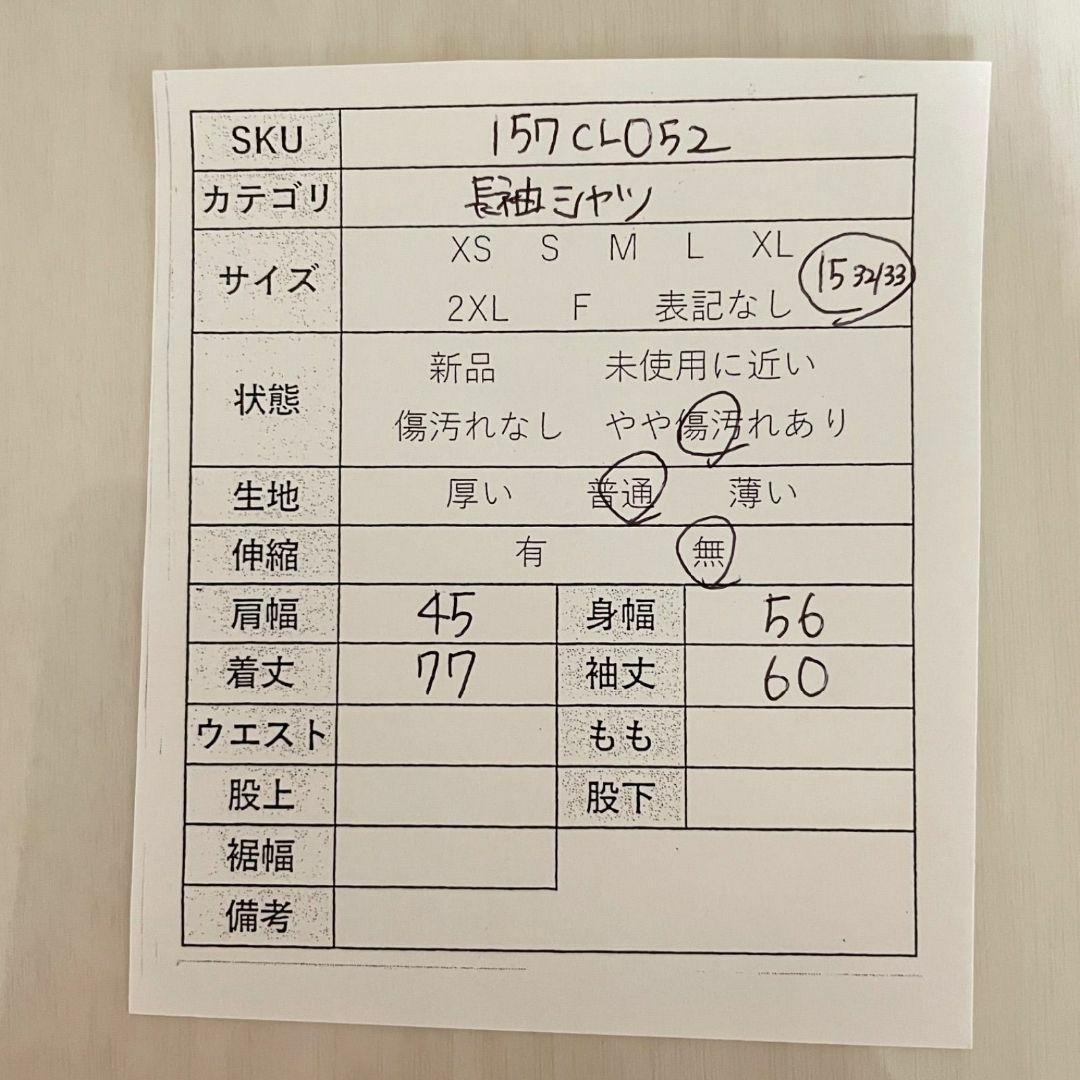 SKU 157CL052
カテゴリ 長袖シャツ
サイズ XS S M L XL
2XL F 表記なし 15 32/33
状態 新品 未使用に近い
傷汚れなし やや傷汚れあり
生地 厚い 普通 薄い
伸縮 有 無
肩幅 45 身幅 56
着丈 77 袖丈 60
ウエスト もも
股上 股下
裾幅
備考